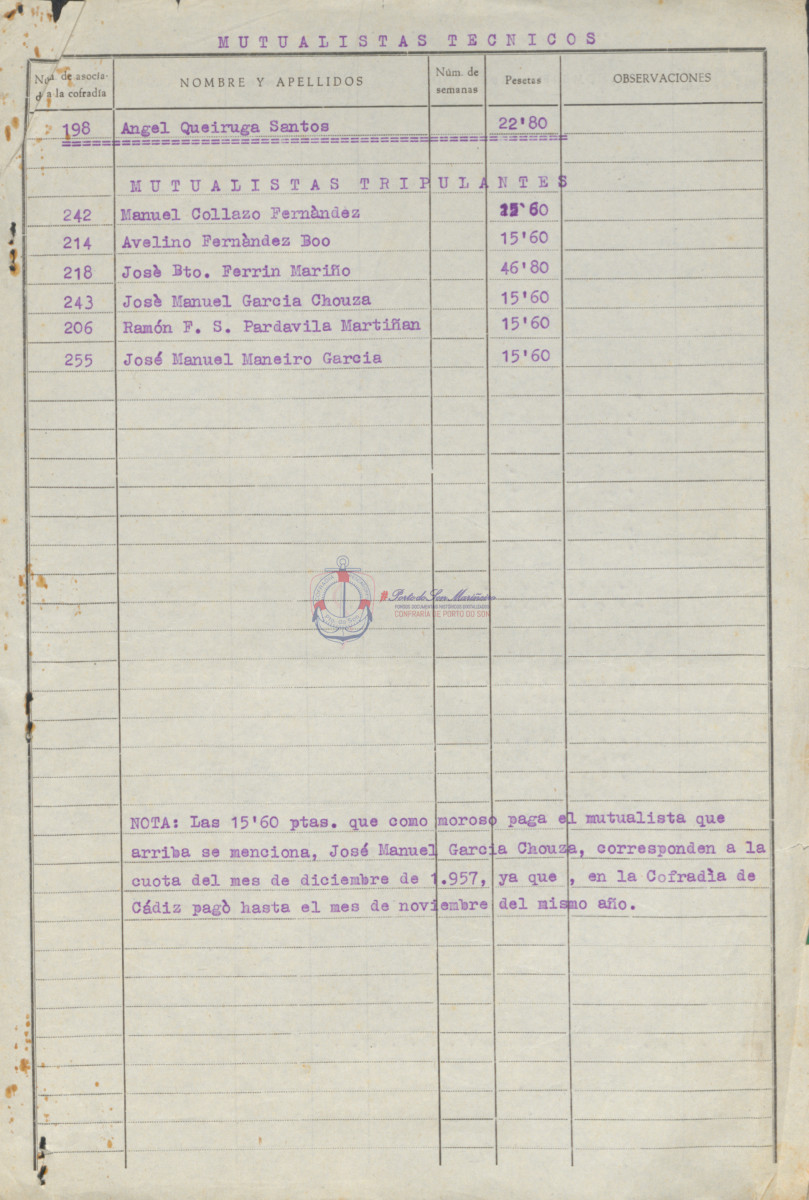 MUTUALISTAS TECNICOS
de asocia- NOMBRE Y APELLIDOS Núm. de semanas Pesetas OBSERVACIONES
a la cofradía
198 Angel Queiruga Santos 22'80
MUTUALISTAS TRIPULANTES
242 Manuel Collazo Fernàndez
214 Avelino Fernàndez Boo 15'60
218 Josè Bto. Ferrin Mariño 46'80
243 Josè Manuel Garcia Chouza 15'60
206 Ramón F. S. Pardavila Martiñan 15'60
255 José Manuel Maneiro Garcia 15'60
Porto do Son Mariñeiro
CONFRARÍA DE PORTO DO SON
NOTA: Las 15'60 ptas. que como moroso paga el mutualista que
arriba se menciona, José Manuel Garcia Chouza, corresponden a la
cuota del mes de diciembre de 1.957, ya que , en la Cofradìa de
Cádiz pagò hasta el mes de noviembre del mismo año.